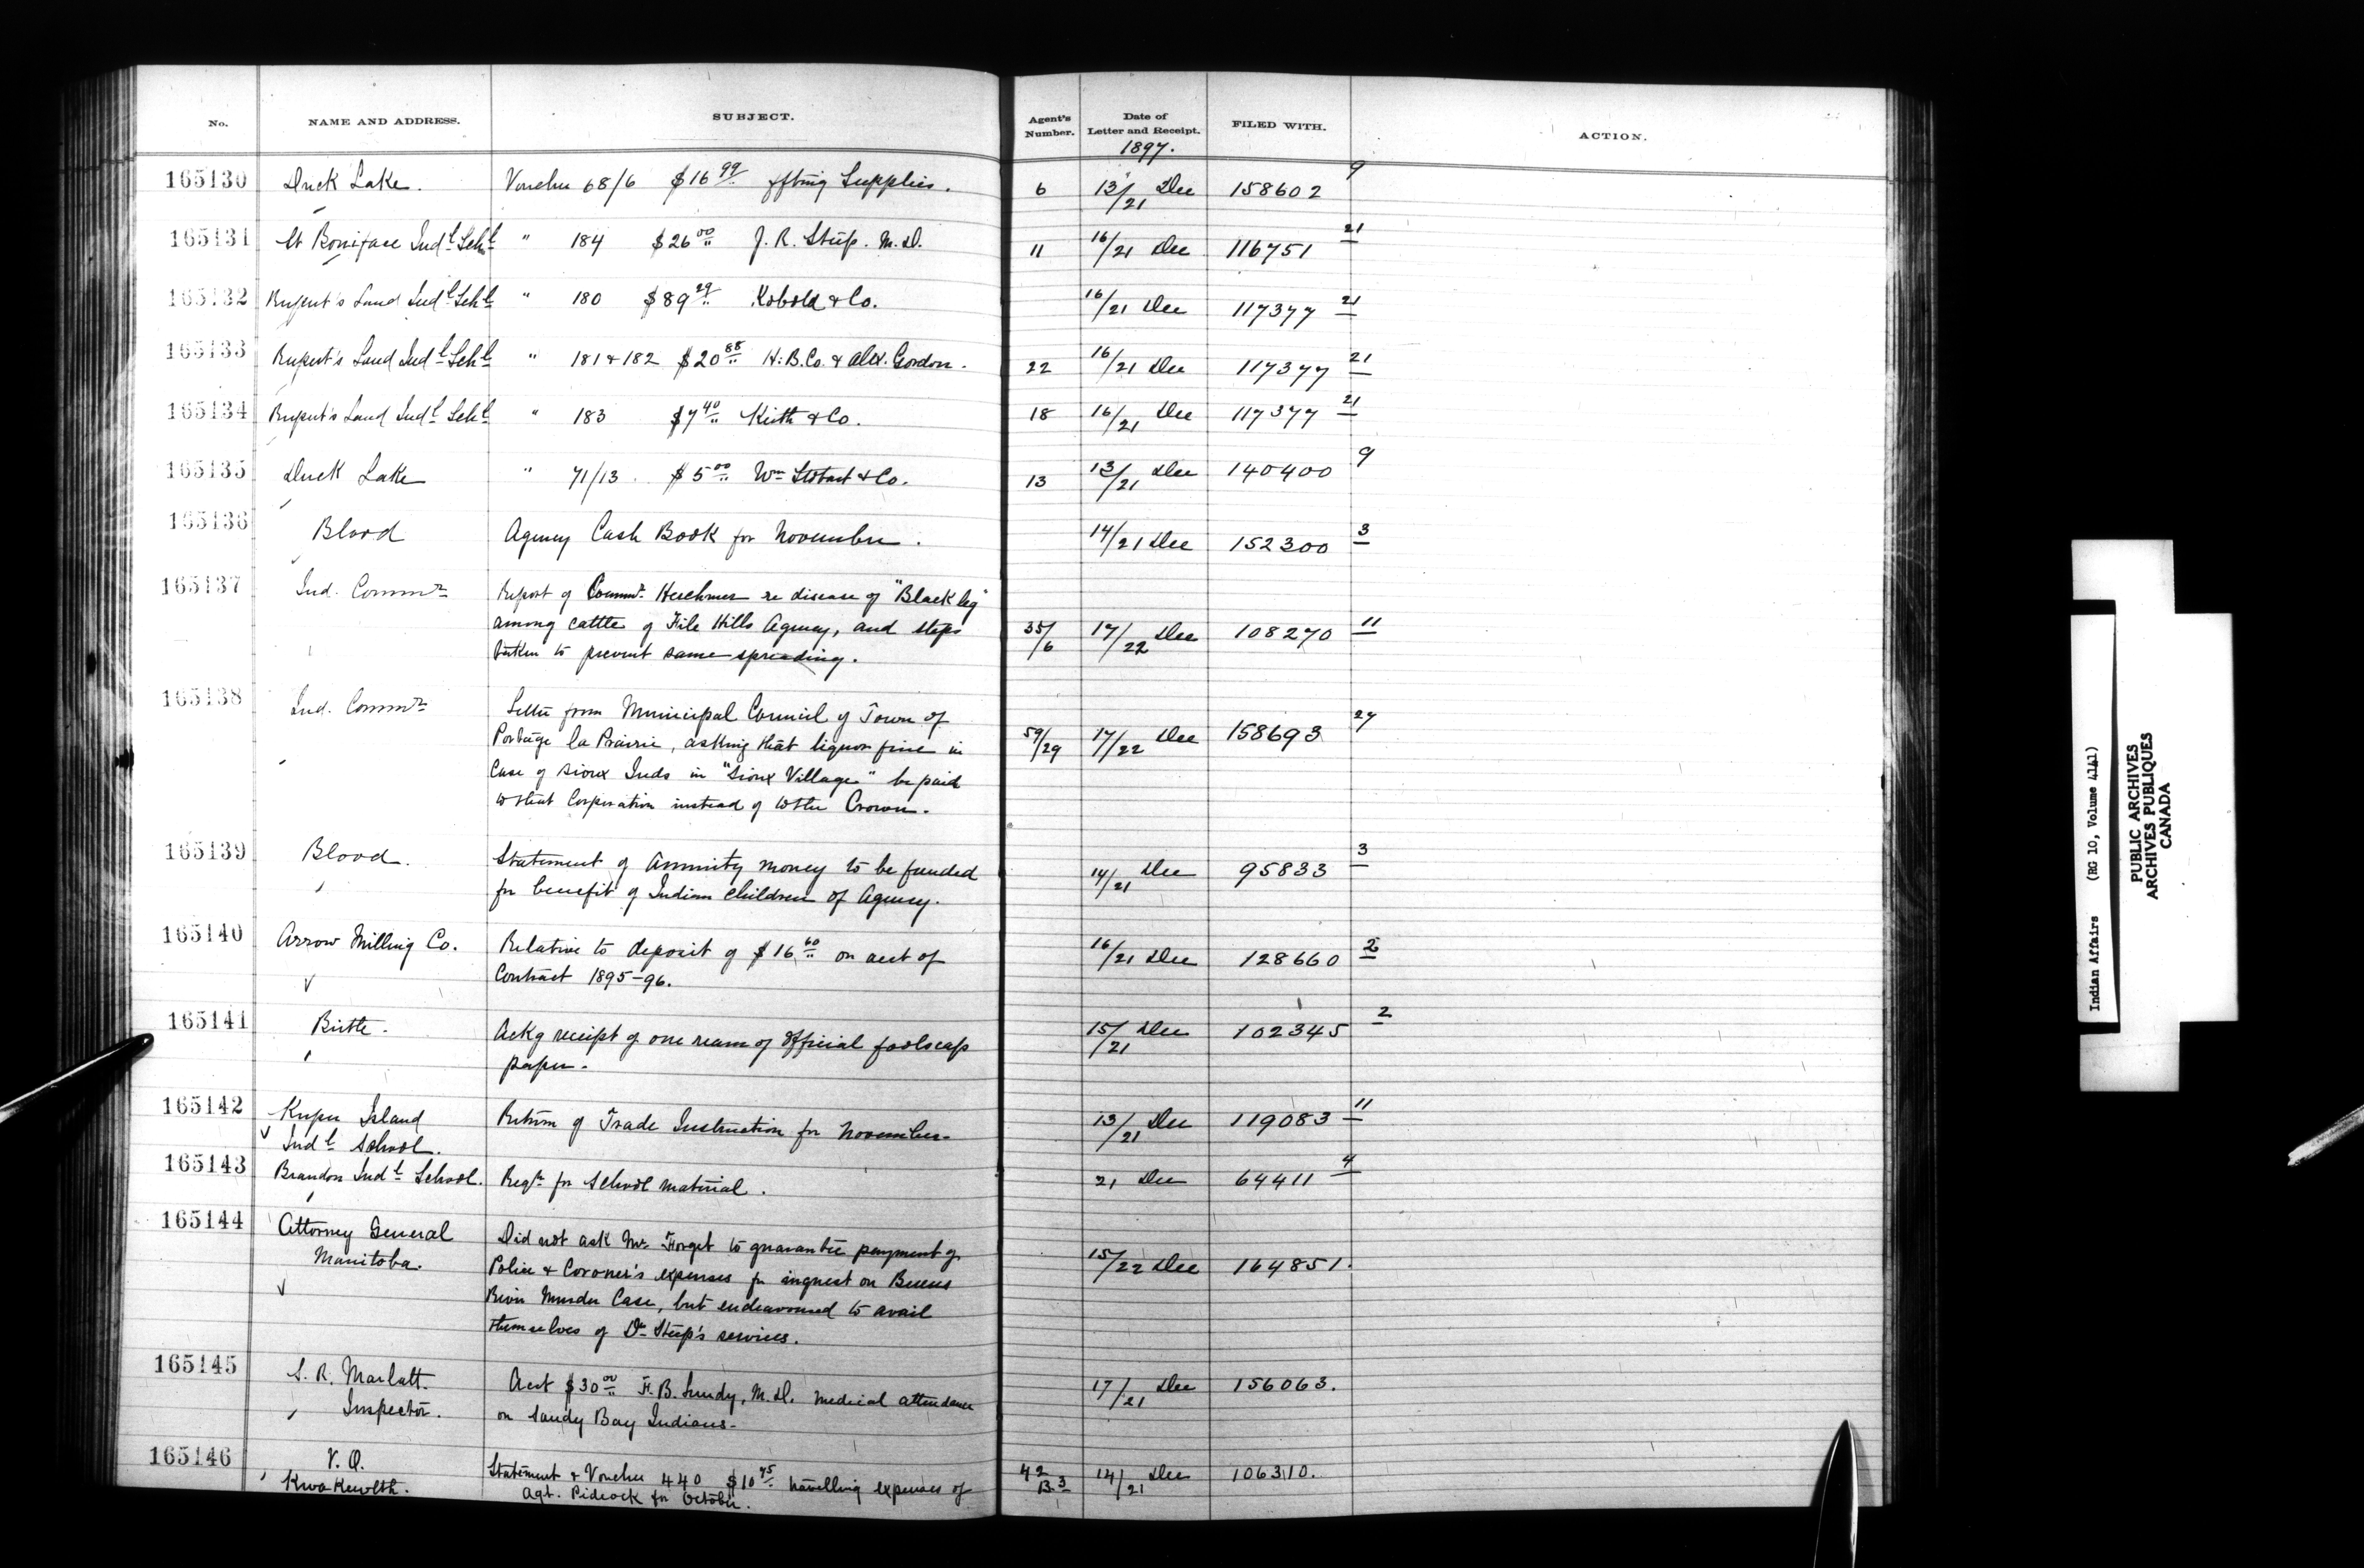 No. NAME AND ADDRESS. SUBJECT. Agent's Number. Date of Letter and Receipt. FILED WITH. ACTION.
1897.
165130 Duck Lake. Voucher 68/6 $16 99 Supplies. 6 13/21 Dec 158602 9
165131 St Boniface Indl Schl " 184 $26 00 J. R. Steep. M.D. 11 16/21 Dec 116751 21
165132 Rupert's Land Indl Schl " 180 $89 29 Kobold & Co. 16/21 Dec 117377 21
165133 Rupert's Land Indl Schl " 181 & 182 $20 88 H.B.Co. & Alex. Gordon. 22 16/21 Dec 117377 21
165134 Rupert's Land Indl Schl " 183 $7 40 Keith & Co. 18 16/21 Dec 117377 21
165135 Duck Lake " 71/13 $5 00 Wm Stobart & Co. 13 13/21 Dec 140400 9
165136 Blood Agency Cash Book for November. 14/21 Dec 152300 3
165137 Ind. Commr Report of Commr. Herchmer re disease of "Black leg"
among cattle of File Hills Agency, and steps 35/6 17/22 Dec 108270 11
taken to prevent same spreading.
165138 Ind. Commr Letter from Municipal Council of Town of
Portage la Prairie, asking that liquor fine in 59/29 17/22 Dec 158693 27
Case of Sioux Inds in "Sioux Village" be paid
to that Corporation instead of to the Crown.
165139 Blood. Statement of Annuity money to be funded 14/21 Dec 95833 3
for benefit of Indian Children of Agency.
165140 Arrow Milling Co. Relative to deposit of $16 60 on acct of 16/21 Dec 128660 2
Contract 1895-96.
165141 Birtle. Ackg receipt of one ream of Official foolscap 15/21 Dec 102345 2
paper.
165142 Kuper Island Return of Trade Instruction for November. 13/21 Dec 119083 11
Indl School.
165143 Brandon Indl School. Reqn for School Material. 21 Dec 64411 4
165144 Attorney General Did not ask Mr. Forget to guarantee payment of
Manitoba. Police & Coroner's expenses for inquest on Berens 15/22 Dec 164851.
River Murder Case, but endeavoured to avail
themselves of Dr Steep's services.
165145 S. R. Marlatt. Acct $30 00 F. B. Lundy, M.D. medical attendance 17/21 Dec 156063.
Inspector. on Sandy Bay Indians.
165146 V. O. Statement & Voucher 440 $10 75 travelling expenses of 42 B.3 14/21 Dec 106310.
Kwawkewlth. Agt. Pidcock for October.
Indian Affairs (RG 10, Volume 4141)
PUBLIC ARCHIVES
ARCHIVES PUBLIQUES
CANADA